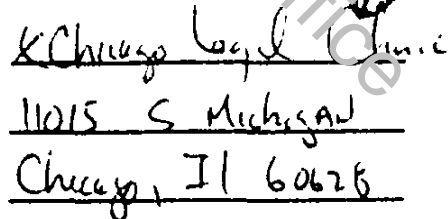 Chicago Legal Clinic
11015 S Michigan
Chicago, Il 60628